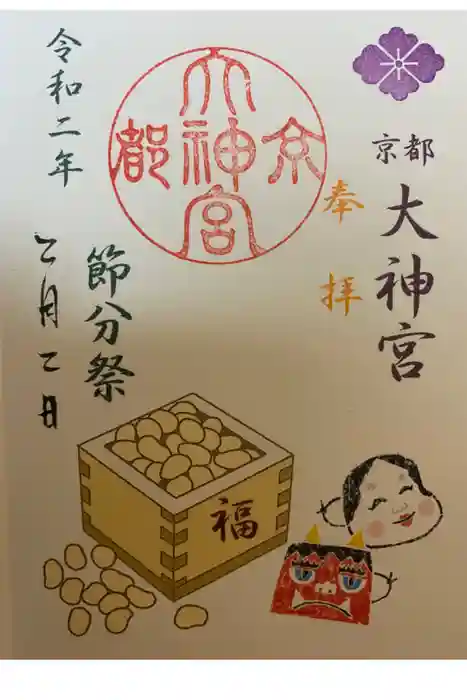 京都
大神宮
奉拝
京
大神宮
都
令和二年
二月二日
節分祭
福